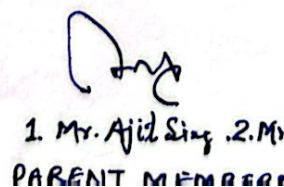 1. Mr. Ajit Sing .2. Mr
PARENT MEMBER